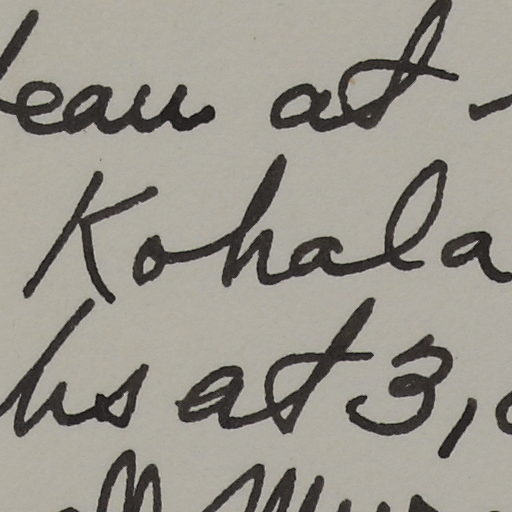 eau at -
Kohala
hs at 3,